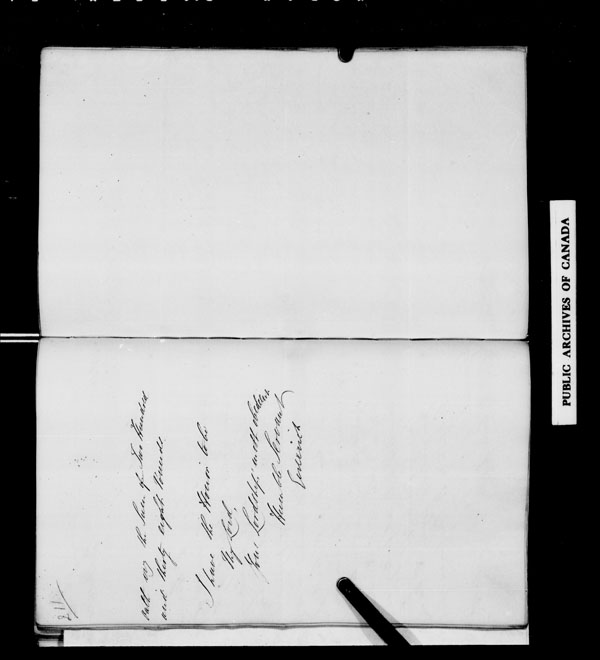 211
the Sum of Two Hundred
and thirty eight Pounds.
I have the Honor to be
My Lord
Your Lordship's most obedient
Humble Servant
Goderich
PUBLIC ARCHIVES OF CANADA